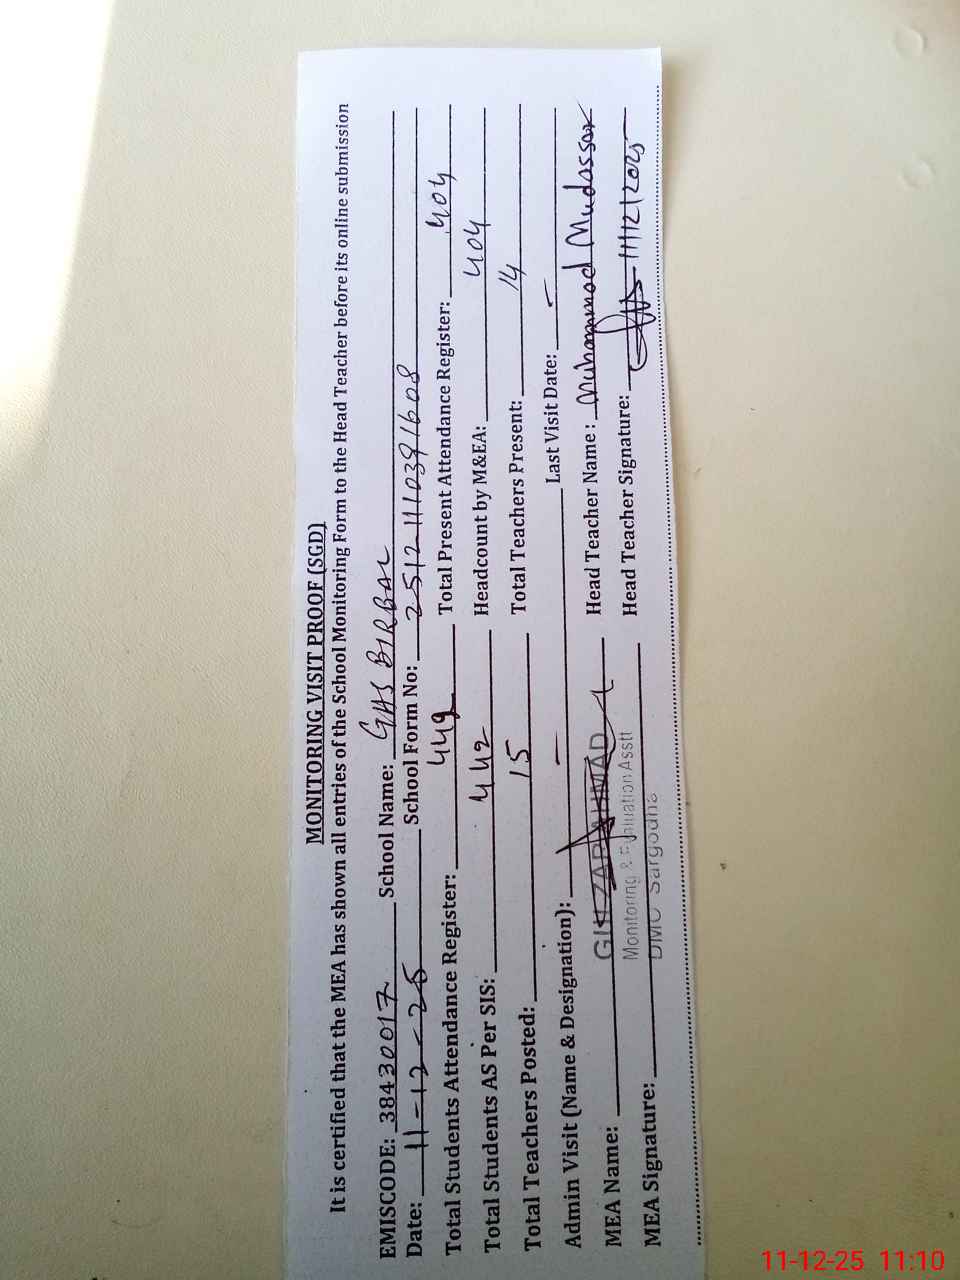 MONITORING VISIT PROOF (SGD)
It is certified that the MEA has shown all entries of the School Monitoring Form to the Head Teacher before its online submission
EMISCODE: 38430017 School Name: GHS BIRBAL
Date: 11-12-25 School Form No: 25121110391608
Total Students Attendance Register: 442 Total Present Attendance Register: 404
Total Students AS Per SIS: 442 Headcount by M&EA: 404
Total Teachers Posted: 15 Total Teachers Present: 14
Admin Visit (Name & Designation): — Last Visit Date: —
MEA Name: AHMAD Head Teacher Name : Muhammad Mudassar
Monitoring & Evaluation Asstt
MEA Signature: DMO Sargodha Head Teacher Signature: 11/12/2025
11-12-25 11:10